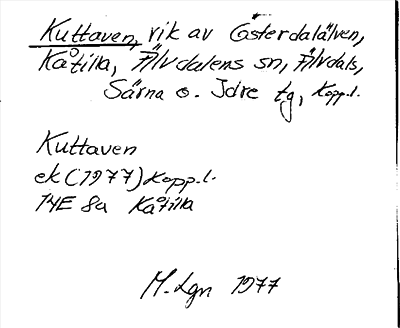 Kuttaven, vik av Österdalälven,
Kåtilla, Älvdalens sn, Älvdals,
Särna o. Idre tg, Kopp.l.
Kuttaven
ek (1977) Kopp.l.
14E 8a Kåtilla
M. Lgn 1977